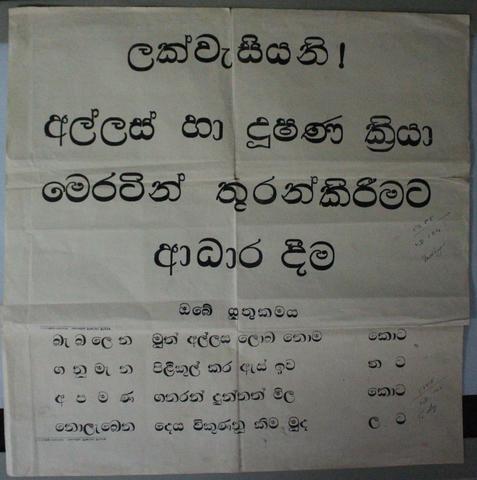 ලක්වැසියනි!
අල්ලස් හා දූෂණ ක්‍රියා
මෙරටින් තුරන්කිරීමට
ආධාර දීම
ඔබේ යුතුකමය
බැබලෙන මුත් අල්ලස ලොබ නොම කොට
ගනුමැන පිළිකුල් කර ඇස් ඉව තට
අපමණ ගතරන් දුන්නත් මිල කොට
නොලැබෙන දෙය විකුණනු කිම මුද ලට